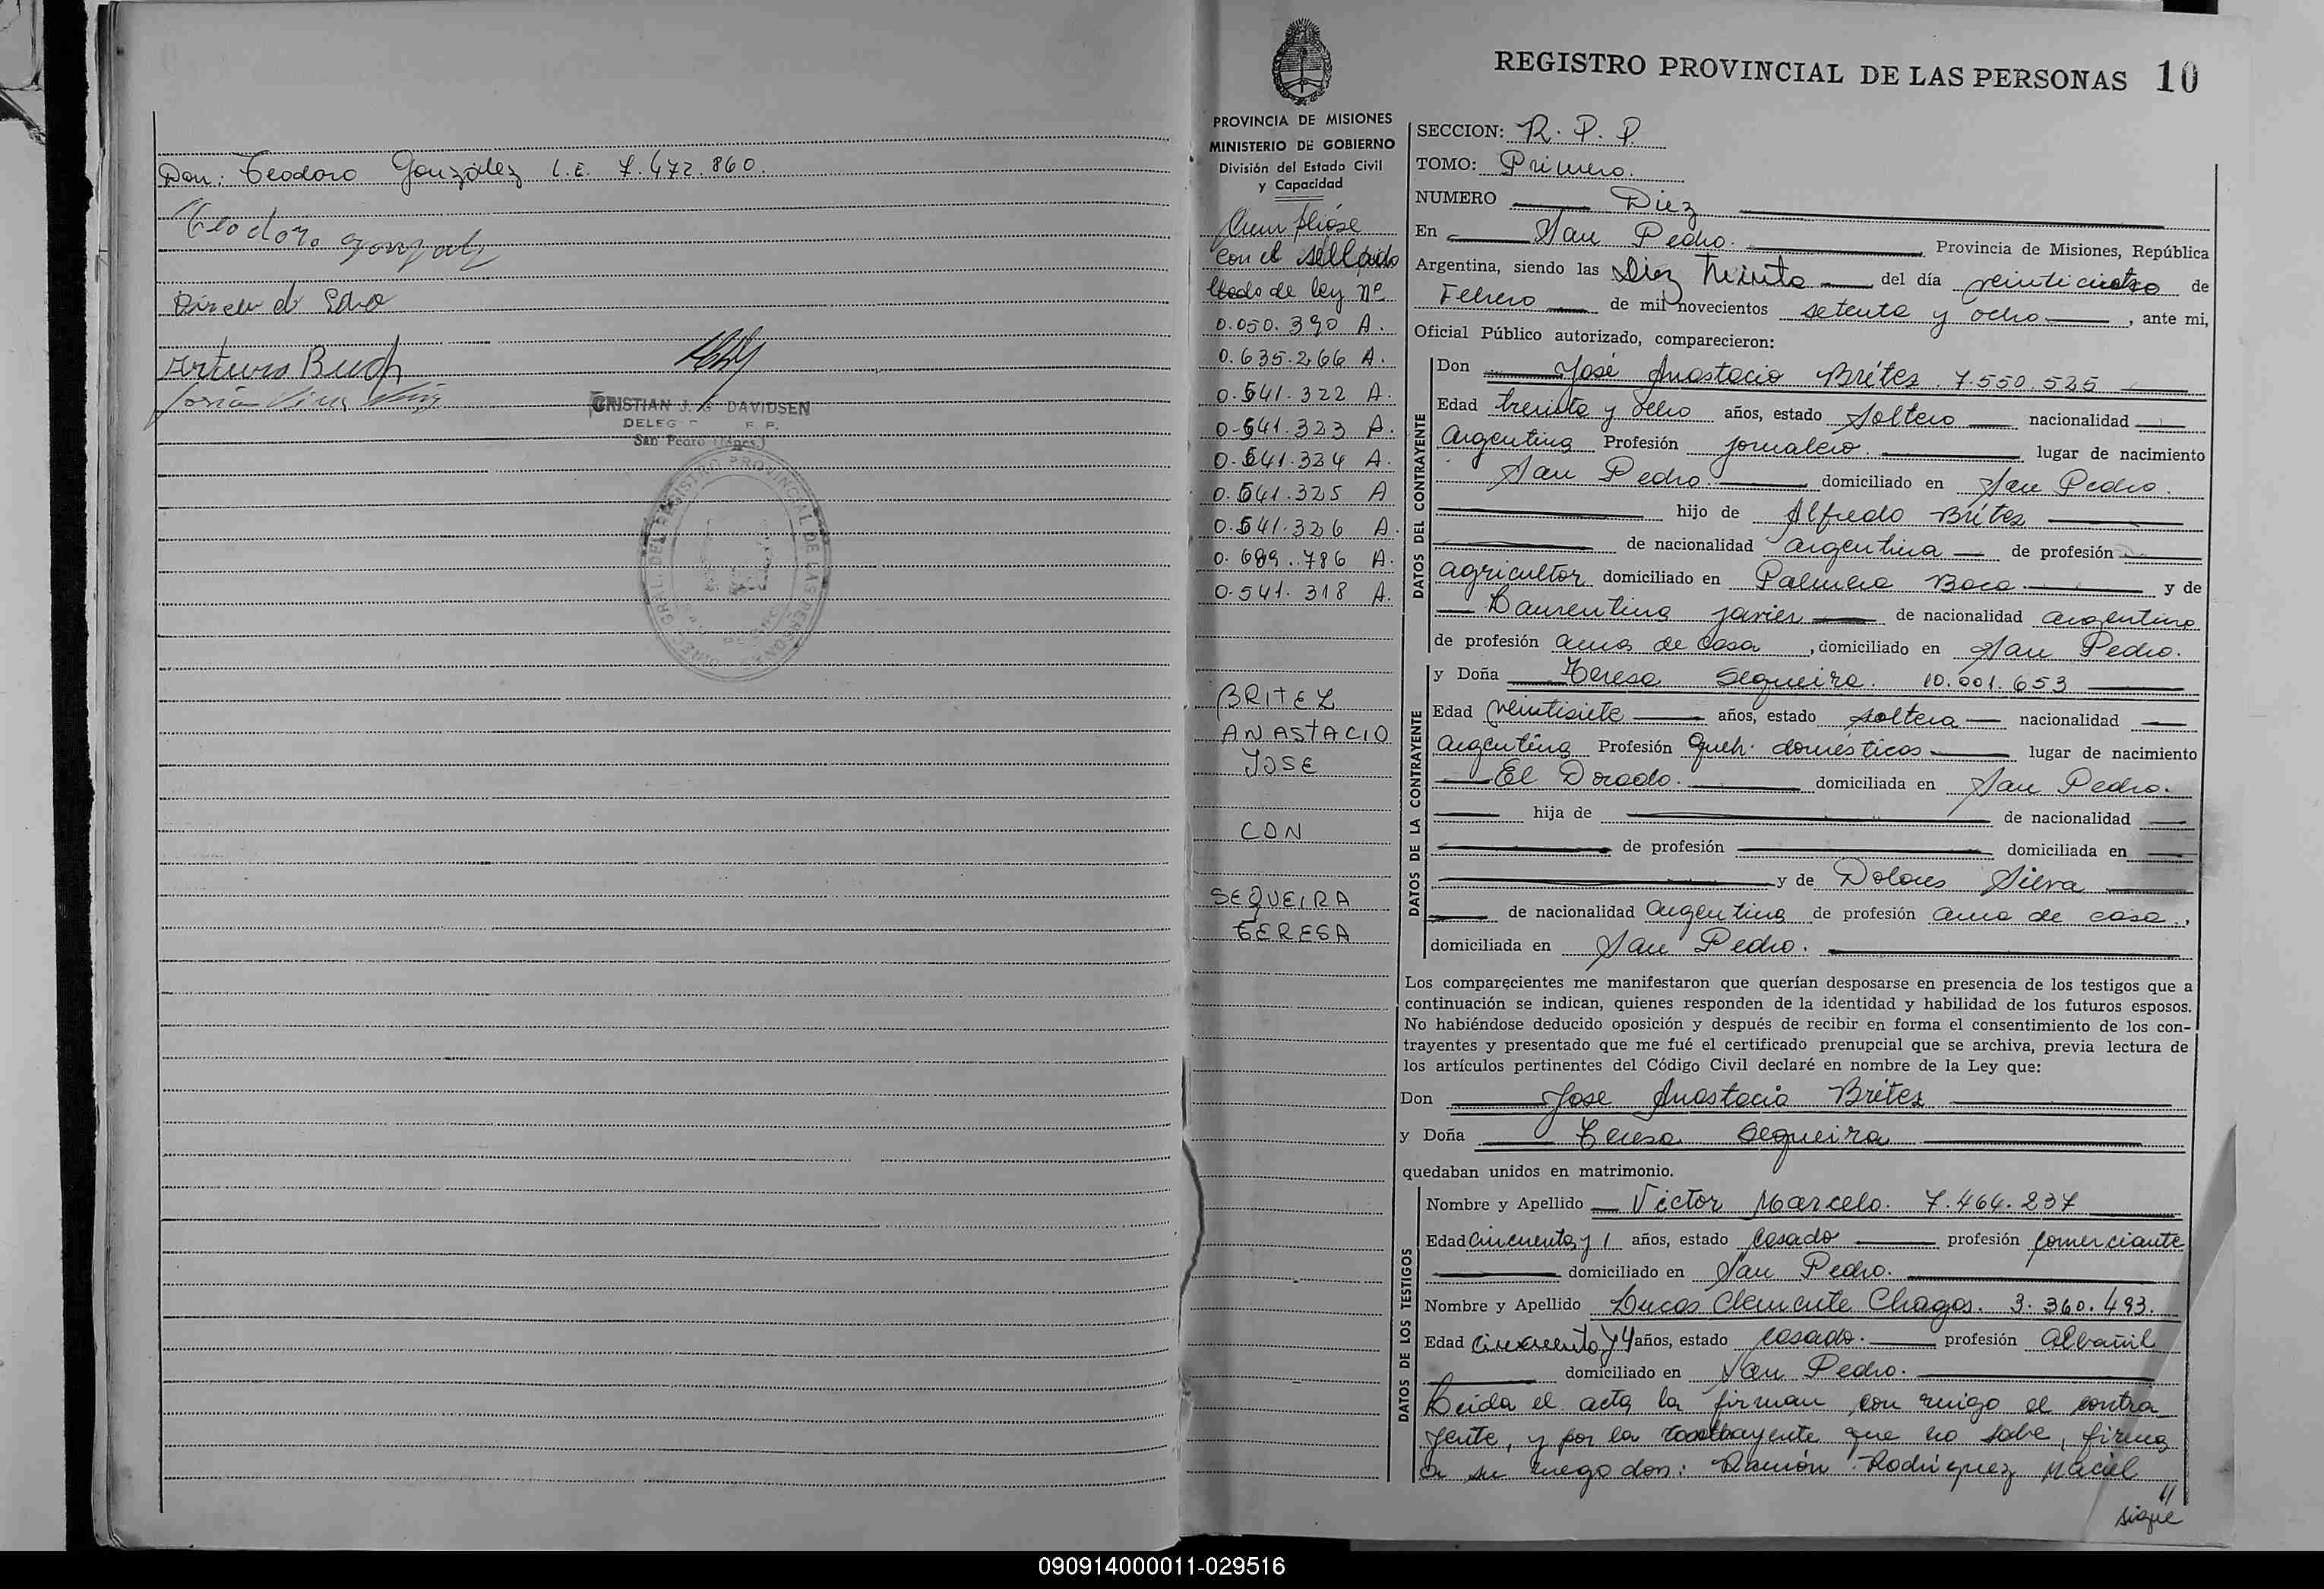 Don: Teodoro González L.E. 7.472.860.
Teodoro
Arturo
CRISTIAN J. DAVIDSEN
DELEG
San Pedro (Mnes.)
DIREC. GRAL. DEL REGISTRO PROVINCIAL DE LAS PERSONAS
REGISTRO PROVINCIAL DE LAS PERSONAS 10
PROVINCIA DE MISIONES
MINISTERIO DE GOBIERNO
División del Estado Civil
y Capacidad
Cumplióse
con el sellado
de ley nº
0.050.390 A.
0.635.266 A.
0.541.322 A.
0-541.323 A.
0.541.324 A.
0.541.325 A
0.541.326 A.
0.689.786 A.
0-541.318 A.
BRITEZ
ANASTACIO
JOSE
CON
SEQUEIRA
TERESA
SECCION: R. P. P.
TOMO: Primero.
NUMERO Diez
En San Pedro. Provincia de Misiones, República
Argentina, siendo las Diez Treinta del día veinticuatro de
Febrero de mil novecientos setenta y ocho, ante mi,
Oficial Público autorizado, comparecieron:
DATOS DEL CONTRAYENTE
Don José Anastacio Brítez. 7.550.525
Edad treinta y ocho años, estado Soltero nacionalidad
Argentina Profesión jornalero. lugar de nacimiento
San Pedro. domiciliado en San Pedro.
hijo de Alfredo Britez
de nacionalidad argentina de profesión
agricultor domiciliado en Palmera Boca y de
Laurentina Javier de nacionalidad argentina
de profesión ama de casa, domiciliado en San Pedro.
DATOS DE LA CONTRAYENTE
y Doña Teresa Sequeira. 10.001.653
Edad veintisiete años, estado soltera nacionalidad
argentina Profesión Queh. domésticos lugar de nacimiento
El Dorado. domiciliada en San Pedro.
hija de de nacionalidad
de profesión domiciliada en
y de Dolores Silva
de nacionalidad argentina de profesión ama de casa.,
domiciliada en San Pedro.
Los comparecientes me manifestaron que querían desposarse en presencia de los testigos que a
continuación se indican, quienes responden de la identidad y habilidad de los futuros esposos.
No habiéndose deducido oposición y después de recibir en forma el consentimiento de los con-
trayentes y presentado que me fué el certificado prenupcial que se archiva, previa lectura de
los artículos pertinentes del Código Civil declaré en nombre de la Ley que:
Don Jose Anastacio Brítez
y Doña Teresa Sequeira
quedaban unidos en matrimonio.
DATOS DE LOS TESTIGOS
Nombre y Apellido Victor Marcelo. 7.464.237
Edad cincuenta y 1 años, estado casado profesión comerciante
domiciliado en San Pedro.
Nombre y Apellido Lucas Clemente Chagas. 3.360.493.
Edad cincuenta y 4 años, estado casado. profesión albañil
domiciliado en San Pedro.
Leida el acta la firman con migo el contra
yente, y por la contrayente que no sabe, firma
a su ruego don: Ramón Rodríguez Maciel
//
sigue
090914000011-029516